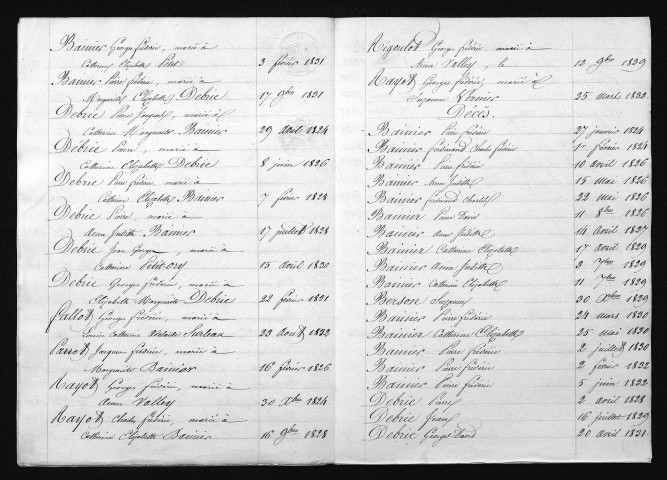 Bainier George frédéric, marié à
Catherine Elizabeth Petit 3 février 1831
Bainier Pierre frédéric, marié à
Marguerite Elizabeth Debrie 17 9bre 1831
Debrie Pierre Jacques, marié à
Catherine Marguerite Bainier 29 avril 1824
Debrie Pierre, marié à
Catherine Elizabeth Debrie 8 juin 1826
Debrie Pierre frédéric, marié à
Catherine Elizabeth Bainier 7 févrer 1828
Debrie Pierre, marié à
Anne Judith Bainier 17 juillet 1828
Debrie Jean George marié à
Catherine Petit-ory 15 avril 1830
Debrie George frédéric, marié à
Elizabeth Marguerite Debrie 22 févrer 1821
fallot George frédéric, marié à
Louise Catherine Adelaide Surleau 23 Août 1832
Parrot Jacques frédéric, marié à
Marguerite Bainier 16 févrer 1826
Rayot George frédéric, marié à
Anne Valley 30 Xbre 1824
Rayot Charles frédéric, marié à
Catherine Elizabeth Bainier 16 9bre 1828
Rigoulot George frédéric marié à
Anne Valley, le 12 9bre 1829
Rayot George frédéric, marié à
Suzanne Vernier 25 mars 1830
Décès.
Bainier Pierre frédéric 27 janvier 1824
Bainier ferdinand Charles frédéric 1er février 1824
Bainier Pierre frédéric 10 avril 1826
Bainier Anne Judith 15 mai 1826
Bainier ferdinand Charles 22 mai 1826
Bainier Pierre David 11 8bre 1826
Bainier Anne Judith 14 avril 1827
Bainier Catherine Elizabeth 17 avril 1829
Bainier Anne Judith 3 7bre 1829
Bainier Catherine Elizabeth 11 7bre 1829
Berson Suzanne 30 Xbre 1829
Bainier Pierre frédéric 24 mars 1830
Bainier Catherine Elizabeth 25 mai 1830
Bainier Pierre frédéric 2 juillet 1830
Bainier Pierre frédéric 2 févrer 1832
Bainier Pierre frédéric 5 juin 1832
Debrie Pierre 2 avril 1828
Debrie Jean 16 juillet 1829
Debrie George David 20 avril 1831